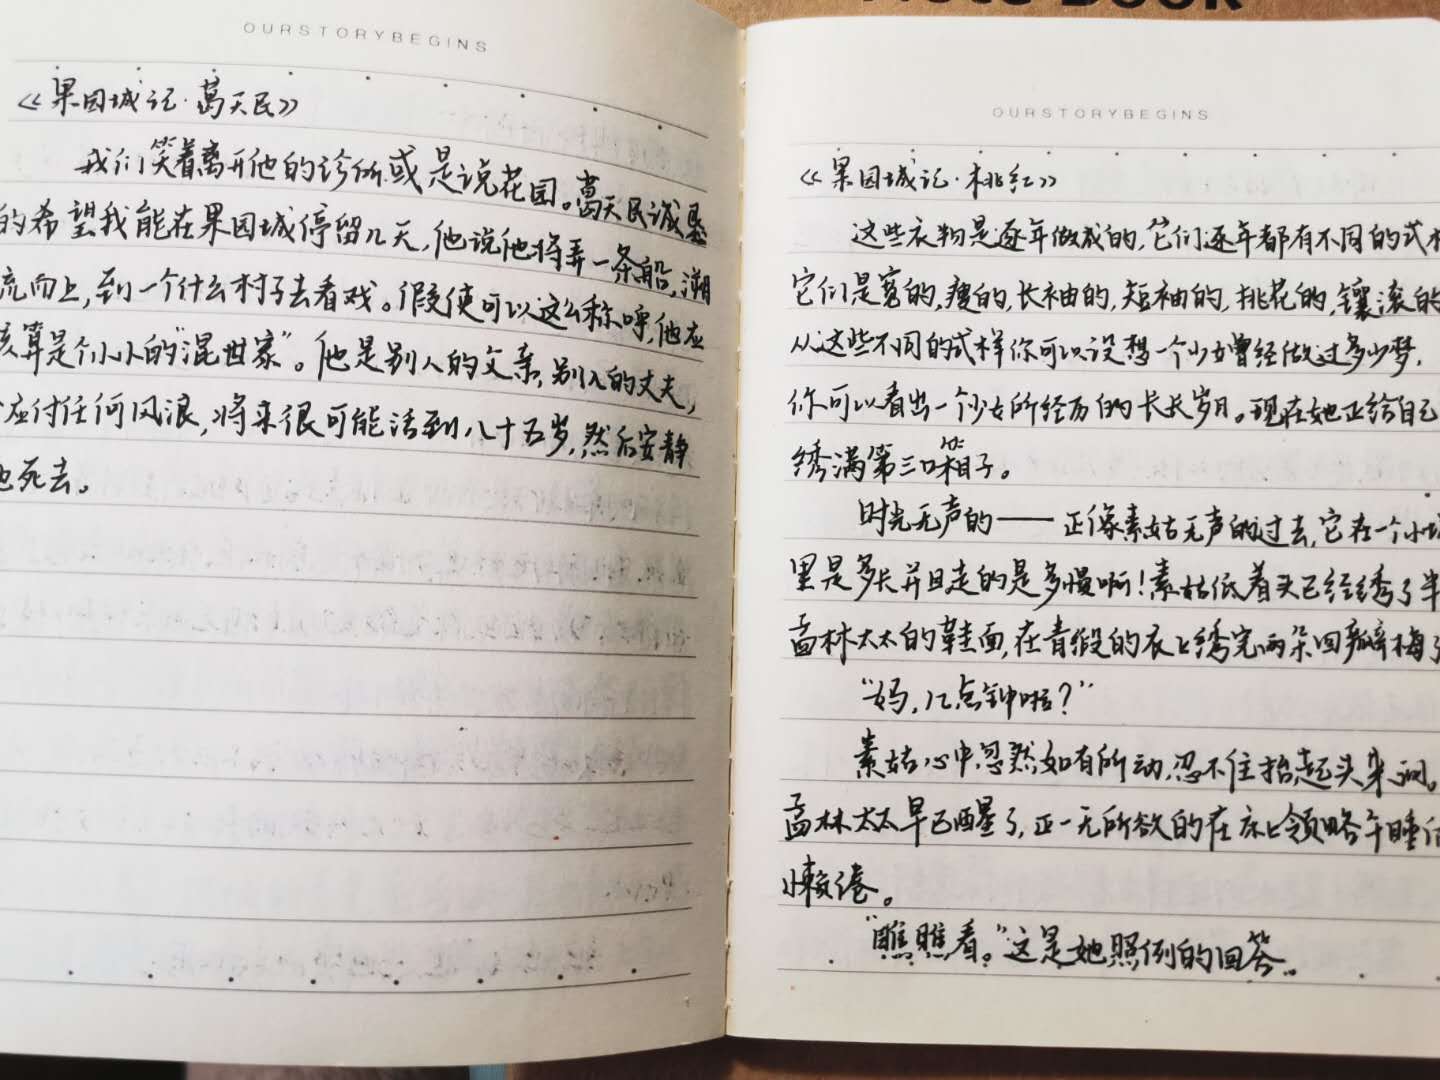 Note Book
OURSTORYBEGINS
《果园城记·葛天民》
我们笑着离开他的诊所或是说花园。葛天民诚恳
的希望我能在果园城停留几天,他说他将弄一条船,溯
流而上,到一个什么村子去看戏。假使可以这么称呼,他应
该算是个小小的“混世家”。他是别人的父亲,别人的丈夫,
应付任何风浪,将来很可能活到八十五岁,然后安静
地死去。
OURSTORYBEGINS
《果园城记·桃红》
这些衣物是逐年做成的,它们逐年都有不同的式样
它们是宽的,瘦的,长袖的,短袖的,挑花的,镶滚的
从这些不同的式样你可以设想一个少女曾经做过多少梦,
你可以看出一个少女所经历的长长岁月。现在她正给自己
绣满第三口箱子。
时光无声的——正像素姑无声的过去,它在一个小城
里是多长并且走的是多慢啊!素姑低着头已经绣了半
孟林太太的鞋面,在青缎的衣上绣完两朵四瓣梅了
“妈,几点钟啦?”
素姑心中忽然如有所动,忍不住抬起头来问。
孟林太太早已醒了,正一无所欲的在床上领略午睡的
懒倦。
“瞧瞧看。”这是她照例的回答。